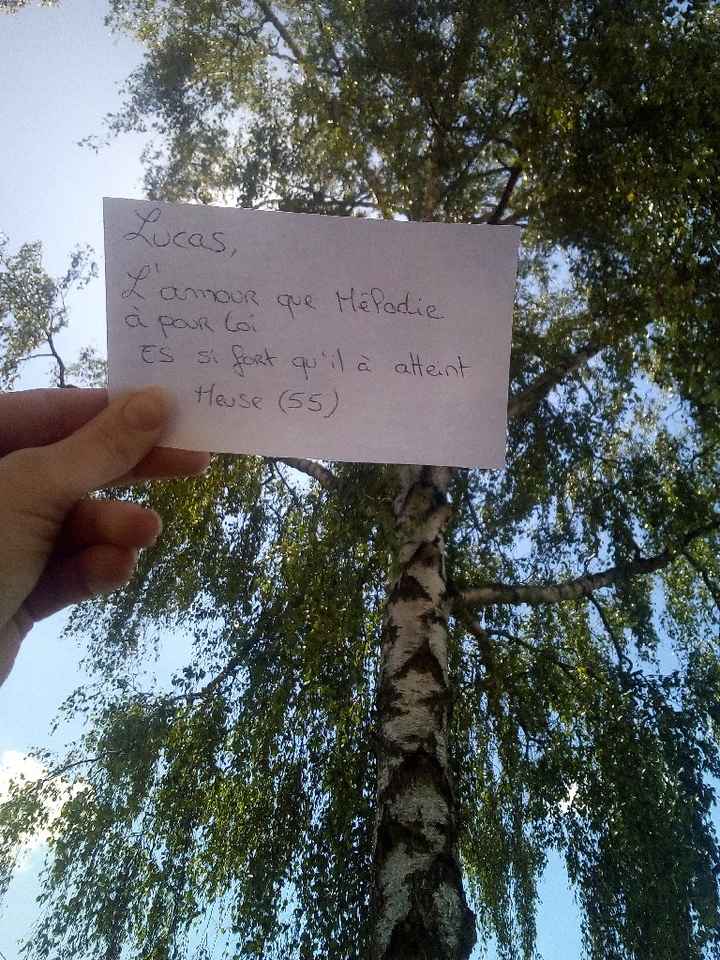 Lucas,
L'amour que Mélodie
à pour toi
Es si fort qu'il à atteint
Meuse (55)